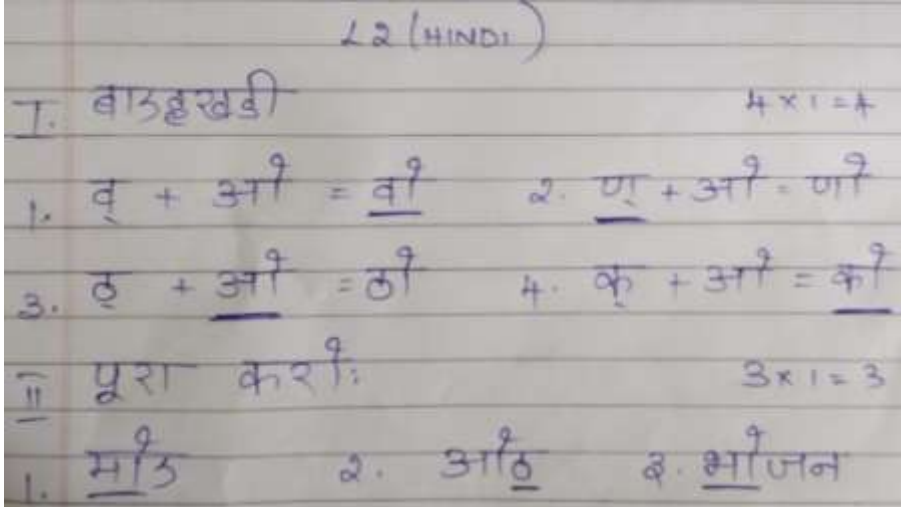 L2 (HINDI)
I. बाउह्खडी 4 x 1 = 4
1. व् + ओ = वो 2. ण् + ओ = णो
3. ठ् + ओ = ठो 4. क् + ओ = को
II पूरा करो: 3 x 1 = 3
1. मोउ २. ओठ ३. भोजन